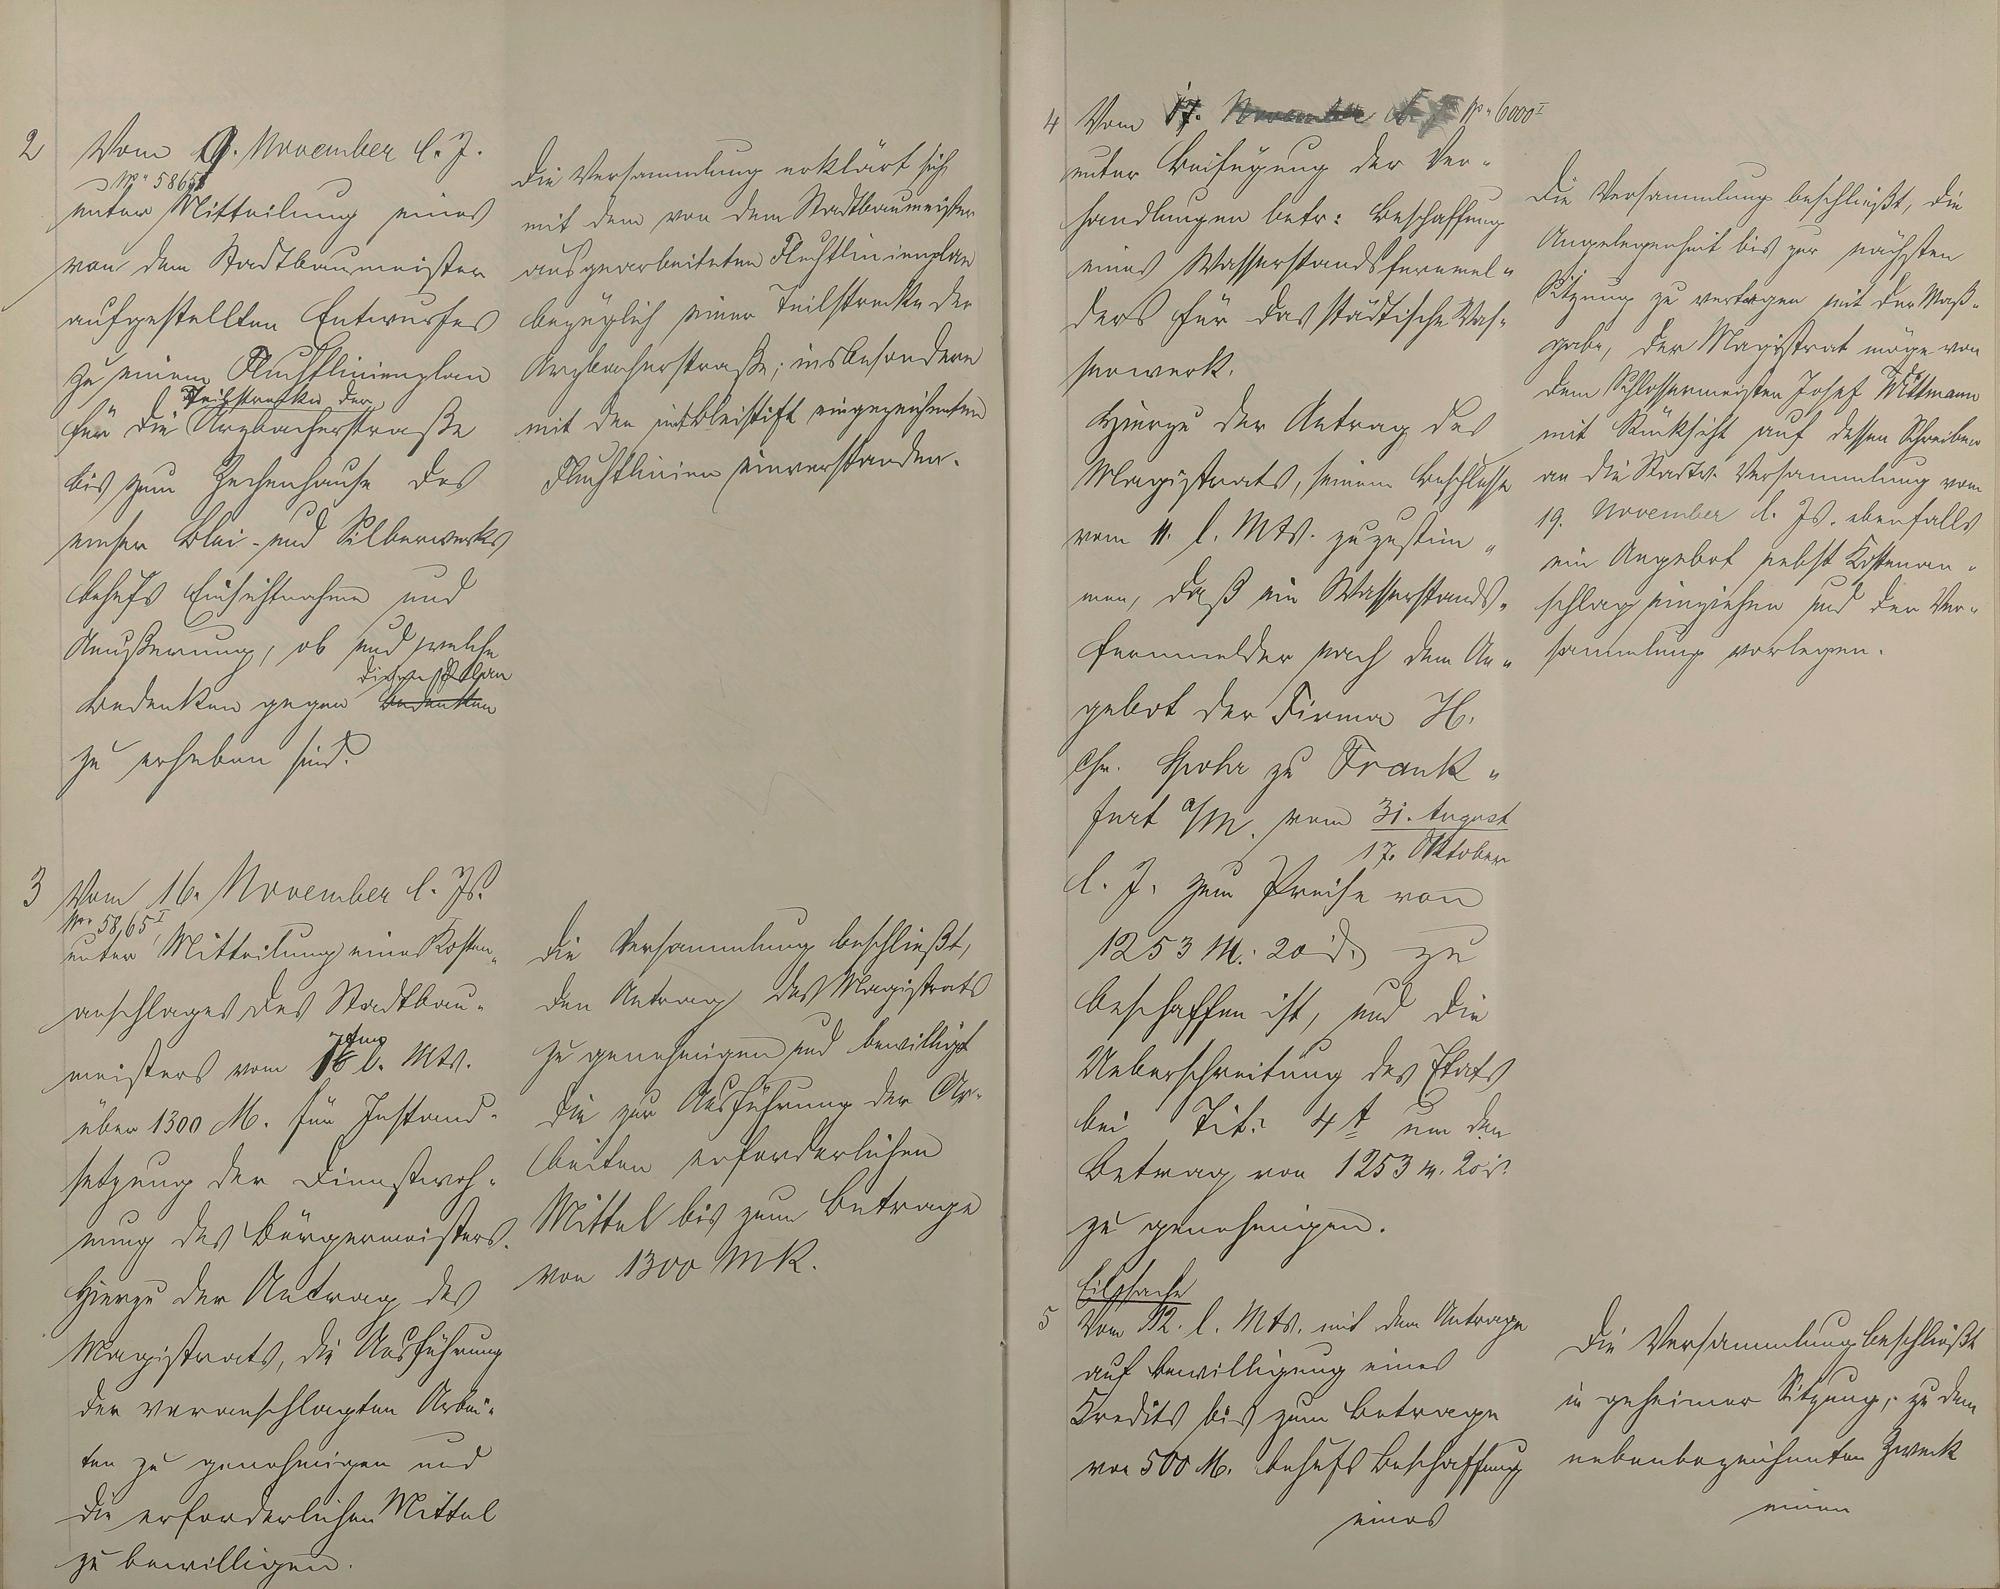 2
Vom 9. November l. J.
No 5865I
unter Mitteilung eines
von dem Stadtbaumeister
aufgestellten Entwurfes
zu einem Fluchtlinienplan
Teilstrecke der
für die Arzbacherstraße
bis zum Zechenhause des
emser Blei- und Silberwerkes
behufs Einsichtnahme und
Aeußerung, ob und welche
diesen Plan
Bedenken gegen Bedenken
zu erheben sind.
Die Versammlung erklärt sich
mit dem von dem Stadtbaumeister
ausgearbeiteten Fluchtlinienplan
bezüglich einer Teilstrecke der
Arzbacherstraße; insbesondere
mit den mit Bleistift eingezeichneten
Fluchtlinien einverstanden.
3
Vom 16. November l. Js.
No 5865I
unter Mitteilung eines Kosten-
anschlages des Stadtbau-
meisters vom l. Mts.
über 1300 M. für Instand-
setzung der Dienstwoh-
nung des Bürgermeisters.
Hierzu der Antrag des
Magistrats, die Ausführung
der veranschlagten Arbei-
ten zu genehmigen und
die erforderlichen Mittel
zu bewilligen.
Die Versammlung beschließt,
den Antrag des Magistrats
zu genehmigen und bewilligt
die zur Ausführung der Ar-
beiten erforderlichen
Mittel bis zum Betrage
von 1300 MK.
4
Vom 17. November l. J. No 6000I
unter Beifügung der Ver-
handlungen betr: Beschaffung
eines Wasserstandsfernmel-
ders für das städtische Was-
serwerk.
Hierzu der Antrag des
Magistrats, seinem Beschlusse
vom 11. l. Mts. zuzustim-
men, daß ein Wasserstands-
fernmelder nach dem An-
gebot der Firma H.
Chr. Spohr zu Frank-
furt a/M. vom 31. August
17. Oktober
l. J. zum Preise von
1253 M. 20 d. zu
beschaffen ist, und die
Ueberschreitung des Etats
bei Tit. 4 um den
Betrag von 1253 M. 20 d.
zu genehmigen.
Die Versammlung beschließt, die
Angelegenheit bis zur nächsten
Sitzung zu vertagen mit der Maß-
gabe, der Magistrat möge von
dem Schlossermeister Josef Wittmann
mit Rücksicht auf dessen Schreiben
an die Stadtv. Versammlung vom
19. November l. Js. ebenfalls
ein Angebot nebst Kostenan-
schlag einziehen und der Ver-
sammlung vorlegen.
Eilsache
5
Vom 12. l. Mts. mit dem Antrage
auf Bewilligung eines
Kredits bis zum Betrage
von 500 M. behufs Beschaffung
eines
Die Versammlung beschließt
in geheimer Sitzung, zu dem
nebenbezeichneten Zweck
einen